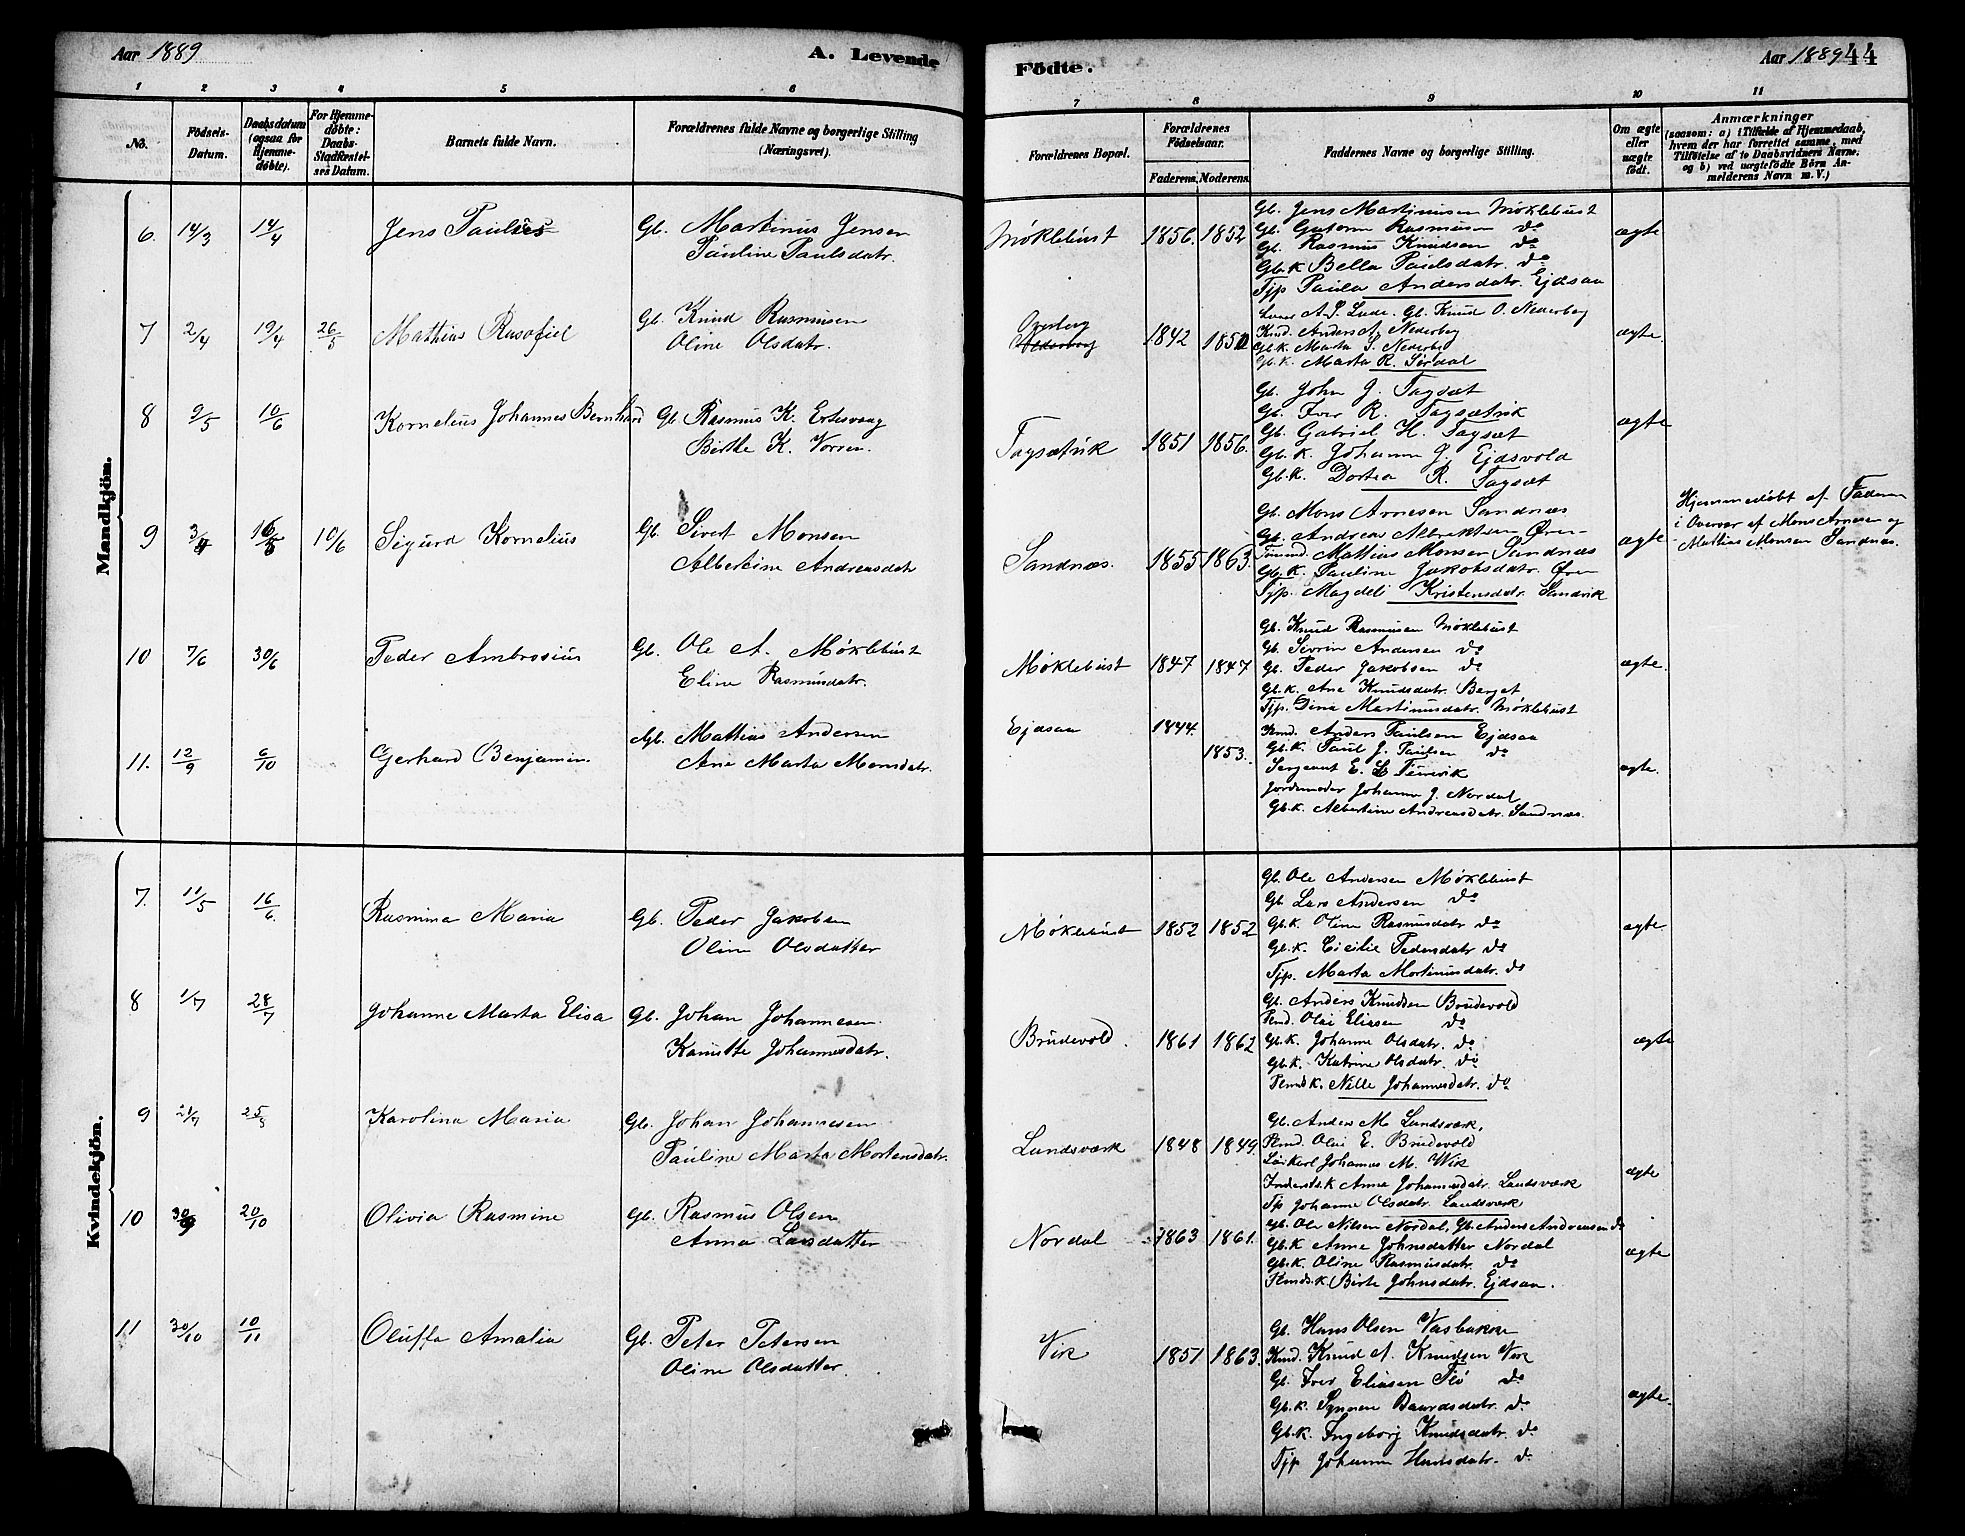 Aar 1889
A. Levende
Födte.
Aar 1889
44
1 2 3 4 5 6 7 8 9 10 11
No.
Födsels-Datum.
Daabsdatum (ogsaa for Hjemme-døbte).
For Hjemme-døbte: Daabs-Stadfæstel-ses Datum.
Barnets fulde Navn.
Forældrenes fulde Navne og borgerlige Stilling (Næringsvei).
Forældrenes Bopæl.
Forældrenes Födselsaar.
Faderens. Moderens.
Faddernes Navne og borgerlige Stilling.
Om ægte eller uægte födt.
Anmærkninger
(saasom: a) i Tilfælde af Hjemmedaab, hvem der har forrettet samme, med Tilføielse af to Daabsvidners Navne; og b) ved uægtefödte Börn An-melderens Navn m. V.)
Mandkjön.
6. 14/3 14/4 Jens Paulus
Gb. Martinus Jensen
Pauline Paulsdatr.
Møklebust 1856. 1852
Gb. Jens Martinusen Møklebust
Gb. Gutorm Rasmusen do
Gb. Rasmus Knudsen do
Gb.k Bella Paulsdatr. do
Tjp Paula Andersdatr. Ejdsaa
ægte
7 2/4 19/4 26/5 Mathias Rasofiel
Gb. Knud Rasmusen
Oline Olsdatr.
Overberg
Nederberg
1842 1850
Gb. Knud O. Nederberg
Knd. Anders A. Nederberg
Gb.k. Marta S. Nederberg
Gb.k. Marta R. Sørdal
ægte.
8 9/5 10/6 Kornelius Johannes Bernhard
Gb. Rasmus K. Ertesvaag
Birthe K. Vorren.
Tagsætvik 1851 1856.
Gb. John J. Tagsæt
Gb. Iver R. Tagsætvik
Gb. Gabriel H. Tagsæt
Gb.k. Johanne J. Ejdsvold
Gb.k. Dortea R. Tagsæt
ægte
9 3/4 16/5 10/6 Sigurd Kornelius
Gb. Sivert Monsen
Albertine Andreasdatr
Sandnæs. 1855 1863.
Gb. Mons Arnesen Sandnæs
Gb. Andreas Albrektsen Øren
Mathias Monsen Sandnæs
Gb.k. Pauline Jakobsdatr. Øren
Tjp. Magdeli Kristensdatr. Sandvik
ægte
Hjemmedøbt af Faderen
i Overvær af Mons Arnesen og
Mathias Monsen Sandnæs.
10 7/6 30/6 Peder Ambrosius
Gb. Ole A. Møklebust
Eline Rasmusdatr.
Møklebust 1847 1847
Gb. Knud Rasmusen Møklebust
Gb. Sivrin Andersen do
Gb. Peder Jakobsen do
Gb.k. Ane Knudsdatr. Berget
Tjp. Dina Martinusdatr. Møklebust
ægte.
11. 12/9 6/10 Gerhard Benjamin.
Gb. Mathias Andersen
Ane Marta Monsdatr.
Ejdsaa 1844. 1853.
Knd. Anders Paulsen Ejdsaa
Gb.k. Paul J. Paulsen do
Sergeant E. L.
Jordemoder Johanne J. Nordal
Gb.k. Albertine Andreasdatr. Sandnæs.
ægte.
Kvindekjön.
7. 11/5 16/6. Rasmina Maria
Gb. Peder Jakobsen
Oline Olsdatter
Møklebust 1852 1852
Gb. Ole Andersen Møklebust
Gb Lars Andersen do
Gb.k. Oline Rasmusdatr do
Gb.k. Cicilie Pedersdatr do
Tjp. Marta Martinusdatr. do
ægte
8 1/7 28/7 Johanne Marta Elisa
Gb. Johan Johannesen.
Kanutte Johannesdatr.
Brudevold. 1861 1862
Gb. Anders Knudsen Brudevold
Pmd. Olai Eliasen do
Gb.k. Johanne Olsdatr. do
Gb.k. Katrine Olsdatr. do
Pmds k. Nille Johannesdatr. do
ægte
9 21/7 25/8 Karolina Maria
Gb. Johan Johannesen
Pauline Marta Mortensdatr.
Landsværk 1848 1849.
Gb. Anders M Landsværk,
Pmd. Olai E. Brudevold
Johannes M. Wik
Inderstsk Anne Johannesdatr. Landsværk
Tp Johanne Olsdatr. Landsværk
ægte
10 30/9 20/10 Olivia Rasmine
Gb. Rasmus Olsen
Anna Larsdatter
Nordal 1863 1861.
Gb. Ole Nilsen Nordal, Gb. Anders Andreasen do
Gb.k Anne Johnsdatter Nordal
Gb.k. Oline Rasmusdatr. do
Pmds.k. Birte Johnsdatr. Ejdsaa.
ægte
11 30/10 10/11 Oluffa Amalia
Gb. Peter Petersen
Oline Olsdatter.
Vik 1851 1863.
Gb. Hans Olsen Vasbakke
Knd. Knud A. Knudsen Vik
Gb. Iver Eliasen Flö do
Gb.k. Synneve Baardsdatr. do
Gb.k. Ingeborg Knudsdatr. do
Tjp Johanne Hansdatr. do
ægte.